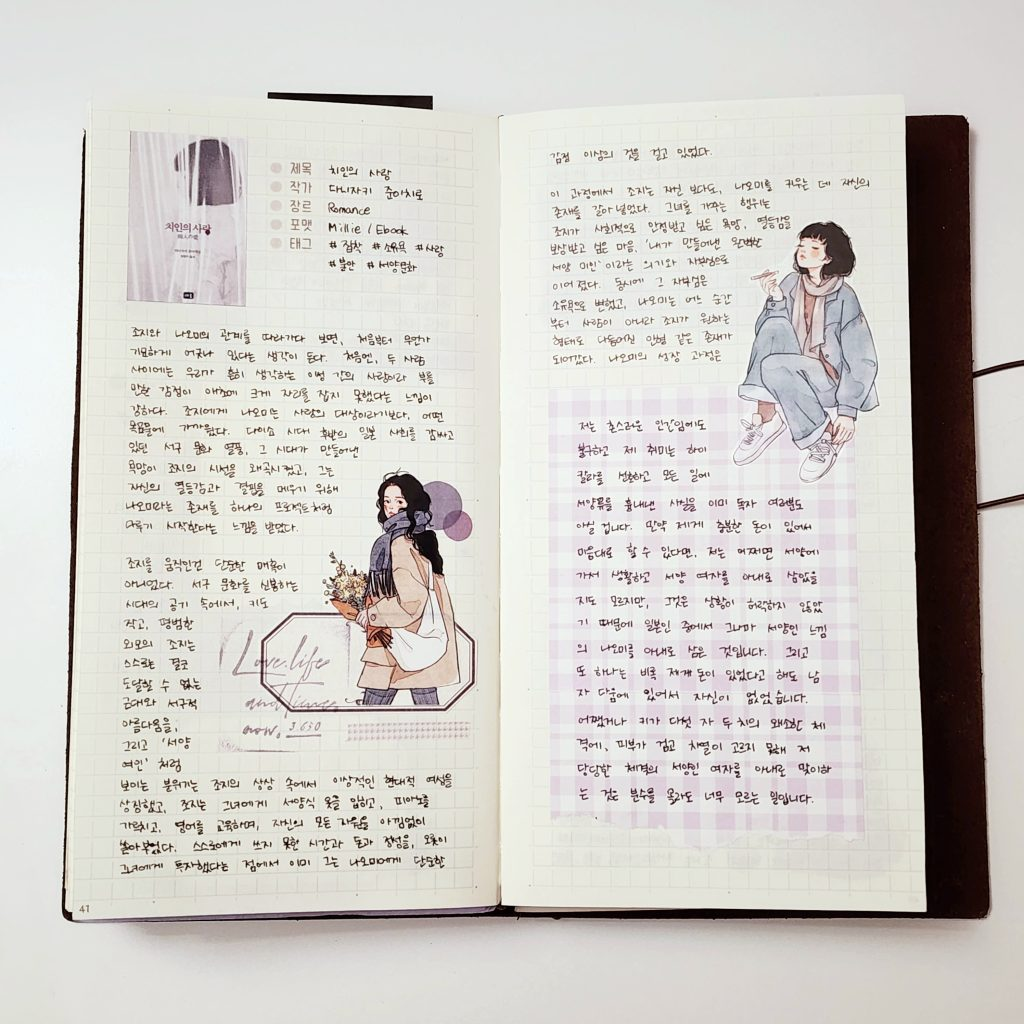 치인의 사랑
제목 치인의 사랑
작가 다니자키 준이치로
장르 Romance
포맷 Millie / Ebook
태그 #집착 #소유욕 #사랑
#불안 #서양문화
조지와 나오미의 관계를 따라가다 보면, 처음부터 무언가
기묘하게 어긋나 있다는 생각이 든다. 처음엔, 두 사람
사이에는 우리가 흔히 생각하는 이성 간의 사랑이라 부를
만한 감정이 애초에 크게 자리를 잡지 못했다는 느낌이
강하다. 조지에게 나오미는 사랑의 대상이라기보다, 어떤
욕망물에 가까웠다. 다이쇼 시대 후반의 일본 사회를 감싸고
있던 서구 문화 열풍, 그 시대가 만들어낸
욕망이 조지의 시선을 왜곡시켰고, 그는
자신의 열등감과 결핍을 메우기 위해
나오미라는 존재를 하나의 프로젝트처럼
다루기 시작한다는 느낌을 받았다.
조지를 움직인건 단순한 매혹이
아니었다. 서구 문화를 신봉하는
시대의 공기 속에서, 키도
작고, 평범한
외모의 조지는
스스로는 결코
도달할 수 없는
근대와 서구적
아름다움을,
그리고 '서양
여인' 처럼
보이는 분위기는 조지의 상상 속에서 이상적인 현대적 여성을
상징했고, 조지는 그녀에게 서양식 옷을 입히고, 피아노를
가르치고, 영어를 교육하며, 자신의 모든 자원을 아낌없이
쏟아부었다. 스스로에게 쓰지 못한 시간과 돈과 정성을, 오롯이
그녀에게 투자했다는 점에서 이미 그는 나오미에게 단순한
Love.life
and Times
now, 3.630
41
감정 이상의 것을 걸고 있었다.
이 과정에서 조지는 자신 보다도, 나오미를 키우는 데 자신의
존재를 갈아 넣었다. 그녀를 가꾸는 행위는
조지가 사회적으로 인정받고 싶은 욕망, 열등감을
보상받고 싶은 마음, '내가 만들어낸 완벽한
서양 미인' 이라는 의기와 자부심으로
이어졌다. 동시에 그 자부심은
소유욕으로 변했고, 나오미는 어느 순간
부터 사람이 아니라 조지가 원하는
형태로 다듬어진 인형 같은 존재가
되어갔다. 나오미의 성장 과정은
저는 촌스러운 인간임에도
불구하고 제 취미는 하이
칼라를 선호하고 모든 일에
서양류를 흉내낸 사실을 이미 독자 여러분도
아실 겁니다. 만약 제게 충분한 돈이 있어서
마음대로 할 수 있다면, 저는 어쩌면 서양에
가서 생활하고 서양 여자를 아내로 삼았을
지도 모르지만, 그것은 상황이 허락하지 않았
기 때문에 일본인 중에서 그나마 서양인 느낌
의 나오미를 아내로 삼은 것입니다. 그리고
또 하나는 비록 제게 돈이 있었다고 해도 남
자 다움에 있어서 자신이 없었습니다.
어쨌거나 키가 다섯 자 두 치의 왜소한 체
격에, 피부가 검고 치열이 고르지 못해 저
당당한 체격의 서양인 여자를 아내로 맞이하
는 것은 분수를 몰라도 너무 모르는 일입니다.